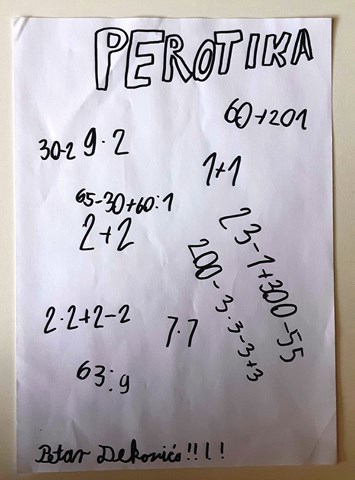 PEROTIKA
60+201
30-2 9·2
1+1
65-30+60:1
2+2
23-1+300-55
200-3·3-3+3
2·2+2-2
7·7
63:9
Petar Dekonić!!!!